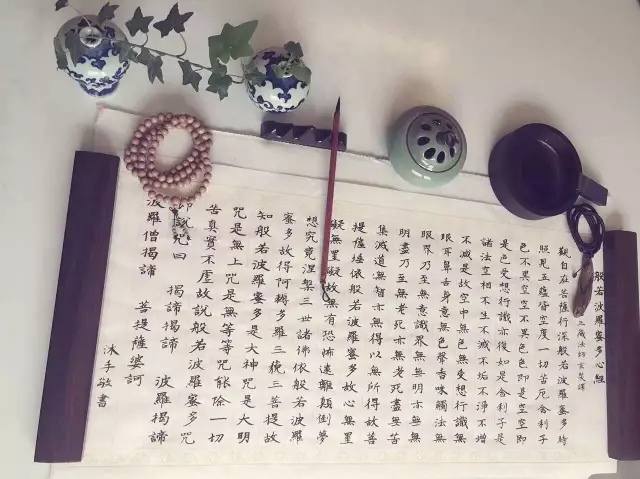 般若波羅蜜多心經
三藏法師玄奘譯
觀自在菩薩行深般若波羅蜜多時
照見五蘊皆空度一切苦厄舍利子
色不異空空不異色色即是空空即
是色受想行識亦復如是舍利子是
諸法空相不生不滅不垢不淨不增
不減是故空中無色無受想行識無
眼耳鼻舌身意無色聲香味觸法無
眼界乃至無意識界無無明亦無無
明盡乃至無老死亦無老死盡無苦
集滅道無智亦無得以無所得故菩
提薩埵依般若波羅蜜多故心無罣
礙無罣礙故無有恐怖遠離顛倒夢
想究竟涅槃三世諸佛依般若波羅
蜜多故得阿耨多羅三藐三菩提故
知般若波羅蜜多是大神咒是大明
咒是無上咒是無等等咒能除一切
苦真實不虛故說般若波羅蜜多咒
即說咒曰 揭諦揭諦 波羅揭諦
波羅僧揭諦 菩提薩婆訶
沐手敬書